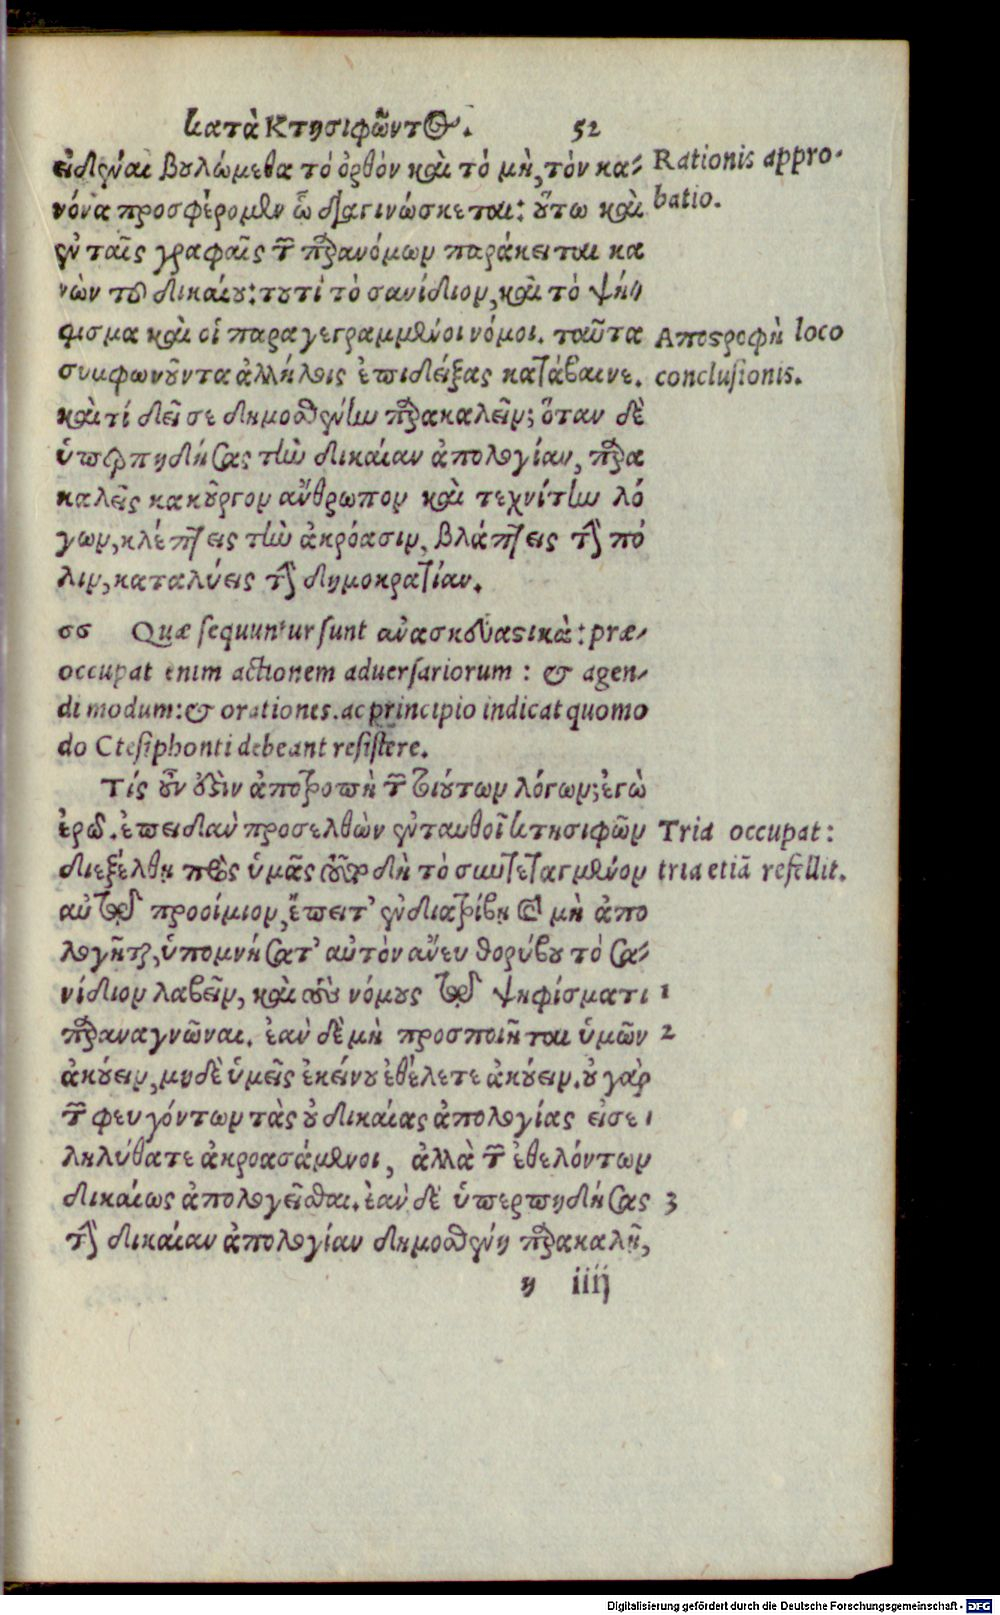 κατὰ Κτησιφῶντος. 52
εἰδέναι βουλώμεθα τὸ ὀρθὸν καὶ τὸ μὴ, τὸν κα-
νόνα προσφέρομεν ᾧ διαγινώσκεται: οὕτω καὶ
ἐν ταῖς γραφαῖς τῶν παρανόμων παράκειται κα
νὼν τοῦ δικαίου: τουτὶ τὸ σανίδιον, καὶ τὸ ψήφ
φισμα καὶ οἱ παραγεγραμμένοι νόμοι. ταῦτα
συμφωνοῦντα ἀλλήλοις ἐπιδείξας κατάβαινε.
καὶ τί δεῖ σε δημοσθένην παρακαλεῖν; ὅταν δὲ
ὑπερπηδήσας τὴν δικαίαν ἀπολογίαν, παρα
καλεῖς κακοῦργον ἄνθρωπον καὶ τεχνίτην λό
γων, κλέπτεις τὴν ἀκρόασιν, βλάπτεις τὴν πό
λιν, καταλύεις τὴν δημοκρατίαν.
Rationis appro-
batio.
Αποςροφὴ loco
conclusionis.
σσ Quæ sequuntur sunt ἀνασκευαςικὰ: præ-
occupat enim actionem aduersariorum: & agen-
di modum: & orationes. ac principio indicat quomo
do Ctesiphonti debeant resistere.
Τίς οὖν οὐδὲν ἀποτροπὴ τῶν τοιούτων λόγων; ἐγὼ
ἐρῶ. ἐπειδὰν προσελθὼν ἐνταυθοῖ κτησιφῶν
διεξέλθῃ πρὸς ὑμᾶς τοῦτο δὴ τὸ συντεταγμένον
αὐτοῦ προοίμιον, ἔπειτ' ἐνδιατρίβῃ καὶ μὴ ἀπο
λογῆται, ὑπομνήσατ' αὐτὸν ἄνευ θορύβου τὸ σα-
νίδιον λαβεῖν, καὶ τοὺς νόμους τῷ ψηφίσματι 1
παραναγνῶναι. ἐὰν δὲ μὴ προσποιῆται ὑμῶν 2
ἀκούειν, μηδὲ ὑμεῖς ἐκείνου ἐθέλετε ἀκούειν. οὐ γὰρ
τῶν φευγόντων τὰς οὐ δικαίας ἀπολογίας εἰσε-
ληλύθατε ἀκροασάμενοι, ἀλλὰ τῶν ἐθελόντων
δικαίως ἀπολογεῖσθαι. ἐὰν δὲ ὑπερπηδήσας 3
τὴν δικαίαν ἀπολογίαν δημοσθένη παρακαλῇ,
Tria occupat:
tria etiã refellit.
η iiij
Digitalisierung gefördert durch die Deutsche Forschungsgemeinschaft - DFG